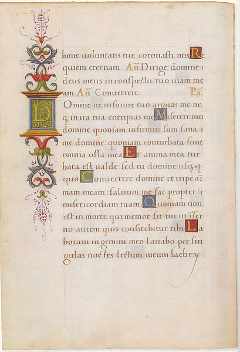 bone voluntatis tue coronasti nos R
quiem eternam An Dirige domine
deus meus in conspectu tuo viam me
am An Convertere Ps
Domine ne in furore tuo arguas me ne
q in ira tua corripias me Miserere mei
domine quoniam infirmus sum sana
me domine quoniam conturbata sunt
omnia ossa mea Et anima mea tur
bata est valde sed tu domine usq
quo Convertere domine et eripe ani
mam meam salvum me fac propter
misericordiam tuam Quoniam non
est in morte qui memor sit tui in infer
no autem quis confitebitur tibi La
boravi in gemitu meo lavabo per sin
gulas noctes lectum meum lachry